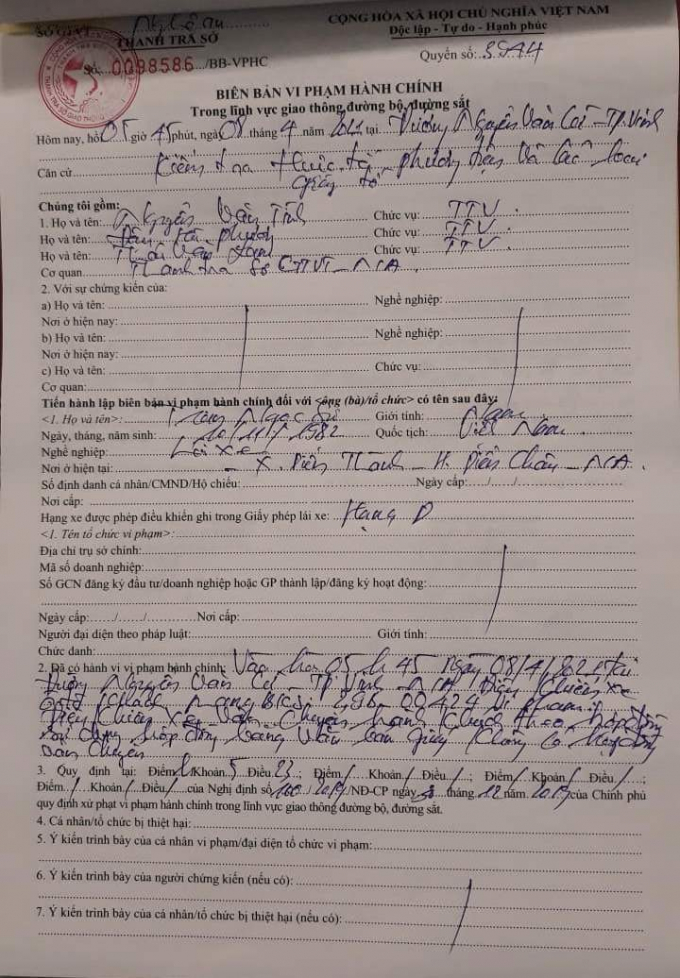 SỞ GTVT Nghệ An
CỘNG HÒA XÃ HỘI CHỦ NGHĨA VIỆT NAM
THANH TRA SỞ
Độc lập - Tự do - Hạnh phúc
Số: 0098586 /BB-VPHC
Quyển số:
BIÊN BẢN VI PHẠM HÀNH CHÍNH
Trong lĩnh vực giao thông đường bộ, đường sắt
Hôm nay, hồi 05 giờ 45 phút, ngày 08 tháng 4 năm 2021 tại Đường Nguyễn Văn Cừ - TP. Vinh
Căn cứ Kiểm tra thực tế phương tiện và các loại
giấy tờ
Chúng tôi gồm:
1. Họ và tên: Nguyễn Văn Chức vụ: TTV
Họ và tên: Chức vụ: TTV
Họ và tên: Văn Chức vụ: TTV
Cơ quan Thanh tra Sở GTVT - N/A
2. Với sự chứng kiến của:
a) Họ và tên: Nghề nghiệp:
Nơi ở hiện nay:
b) Họ và tên: Nghề nghiệp:
Nơi ở hiện nay:
c) Họ và tên: Chức vụ:
Cơ quan:
Tiến hành lập biên bản vi phạm hành chính đối với <ông (bà)/tổ chức> có tên sau đây:
<1. Họ và tên>: Ngọc Giới tính: Nam
Ngày, tháng, năm sinh: 10/11/1982 Quốc tịch: Việt Nam
Nghề nghiệp: Lái xe
Nơi ở hiện tại: - X. Diễn Thành - H. Diễn Châu - N/A.
Số định danh cá nhân/CMND/Hộ chiếu: Ngày cấp:..../...../
Nơi cấp:
Hạng xe được phép điều khiển ghi trong Giấy phép lái xe: Hạng D
<1. Tên tổ chức vi phạm>:
Địa chỉ trụ sở chính:
Mã số doanh nghiệp:
Số GCN đăng ký đầu tư/doanh nghiệp hoặc GP thành lập/đăng ký hoạt động:
Ngày cấp:..../...../..... Nơi cấp:
Người đại diện theo pháp luật: Giới tính:
Chức danh:
2. Đã có hành vi vi phạm hành chính: Vào hồi 05h45 Ngày 08/4/2021 tại
Đường Nguyễn Văn Cừ - TP Vinh - N/A điều khiển xe
ô tô khách mang BKS: 00424 vi phạm:
Điều khiển xe vận chuyển hành khách theo hợp đồng
sử dụng hợp đồng bằng văn bản giấy không có hợp đồng
vận chuyển
3. Quy định tại: Điểm Khoản 5 Điều 23; Điểm / Khoản / Điều /; Điểm / Khoản / Điều /;
Điểm / Khoản / Điều / của Nghị định số 100 / 2019/NĐ-CP ngày 30 tháng 12 năm 2019 của Chính phủ
quy định xử phạt vi phạm hành chính trong lĩnh vực giao thông đường bộ, đường sắt.
4. Cá nhân/tổ chức bị thiệt hại:
5. Ý kiến trình bày của cá nhân vi phạm/đại diện tổ chức vi phạm:
6. Ý kiến trình bày của người chứng kiến (nếu có):
7. Ý kiến trình bày của cá nhân/tổ chức bị thiệt hại (nếu có):